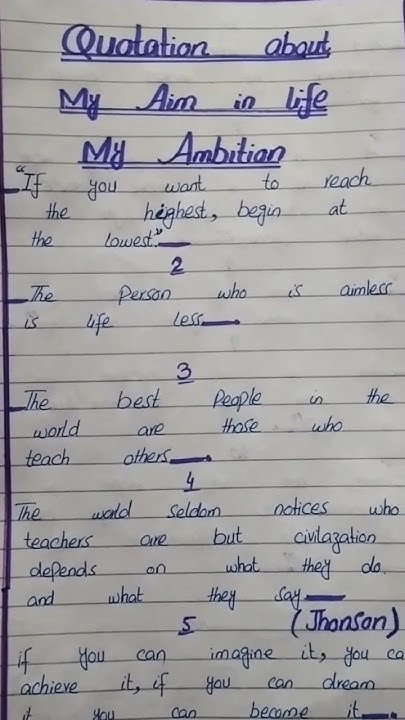 Quotation about
My Aim in life
My Ambition
"If you want to reach
the highest, begin at
the lowest."
2
The Person who is aimless
is life less
3
The best People in the
world are those who
teach others.
4
The world Seldom notices who
teachers are but civilazation
depends on what they do
and what they say
5 (Jhonson)
if you can imagine it, you ca
achieve it, if you can dream
it you can become it